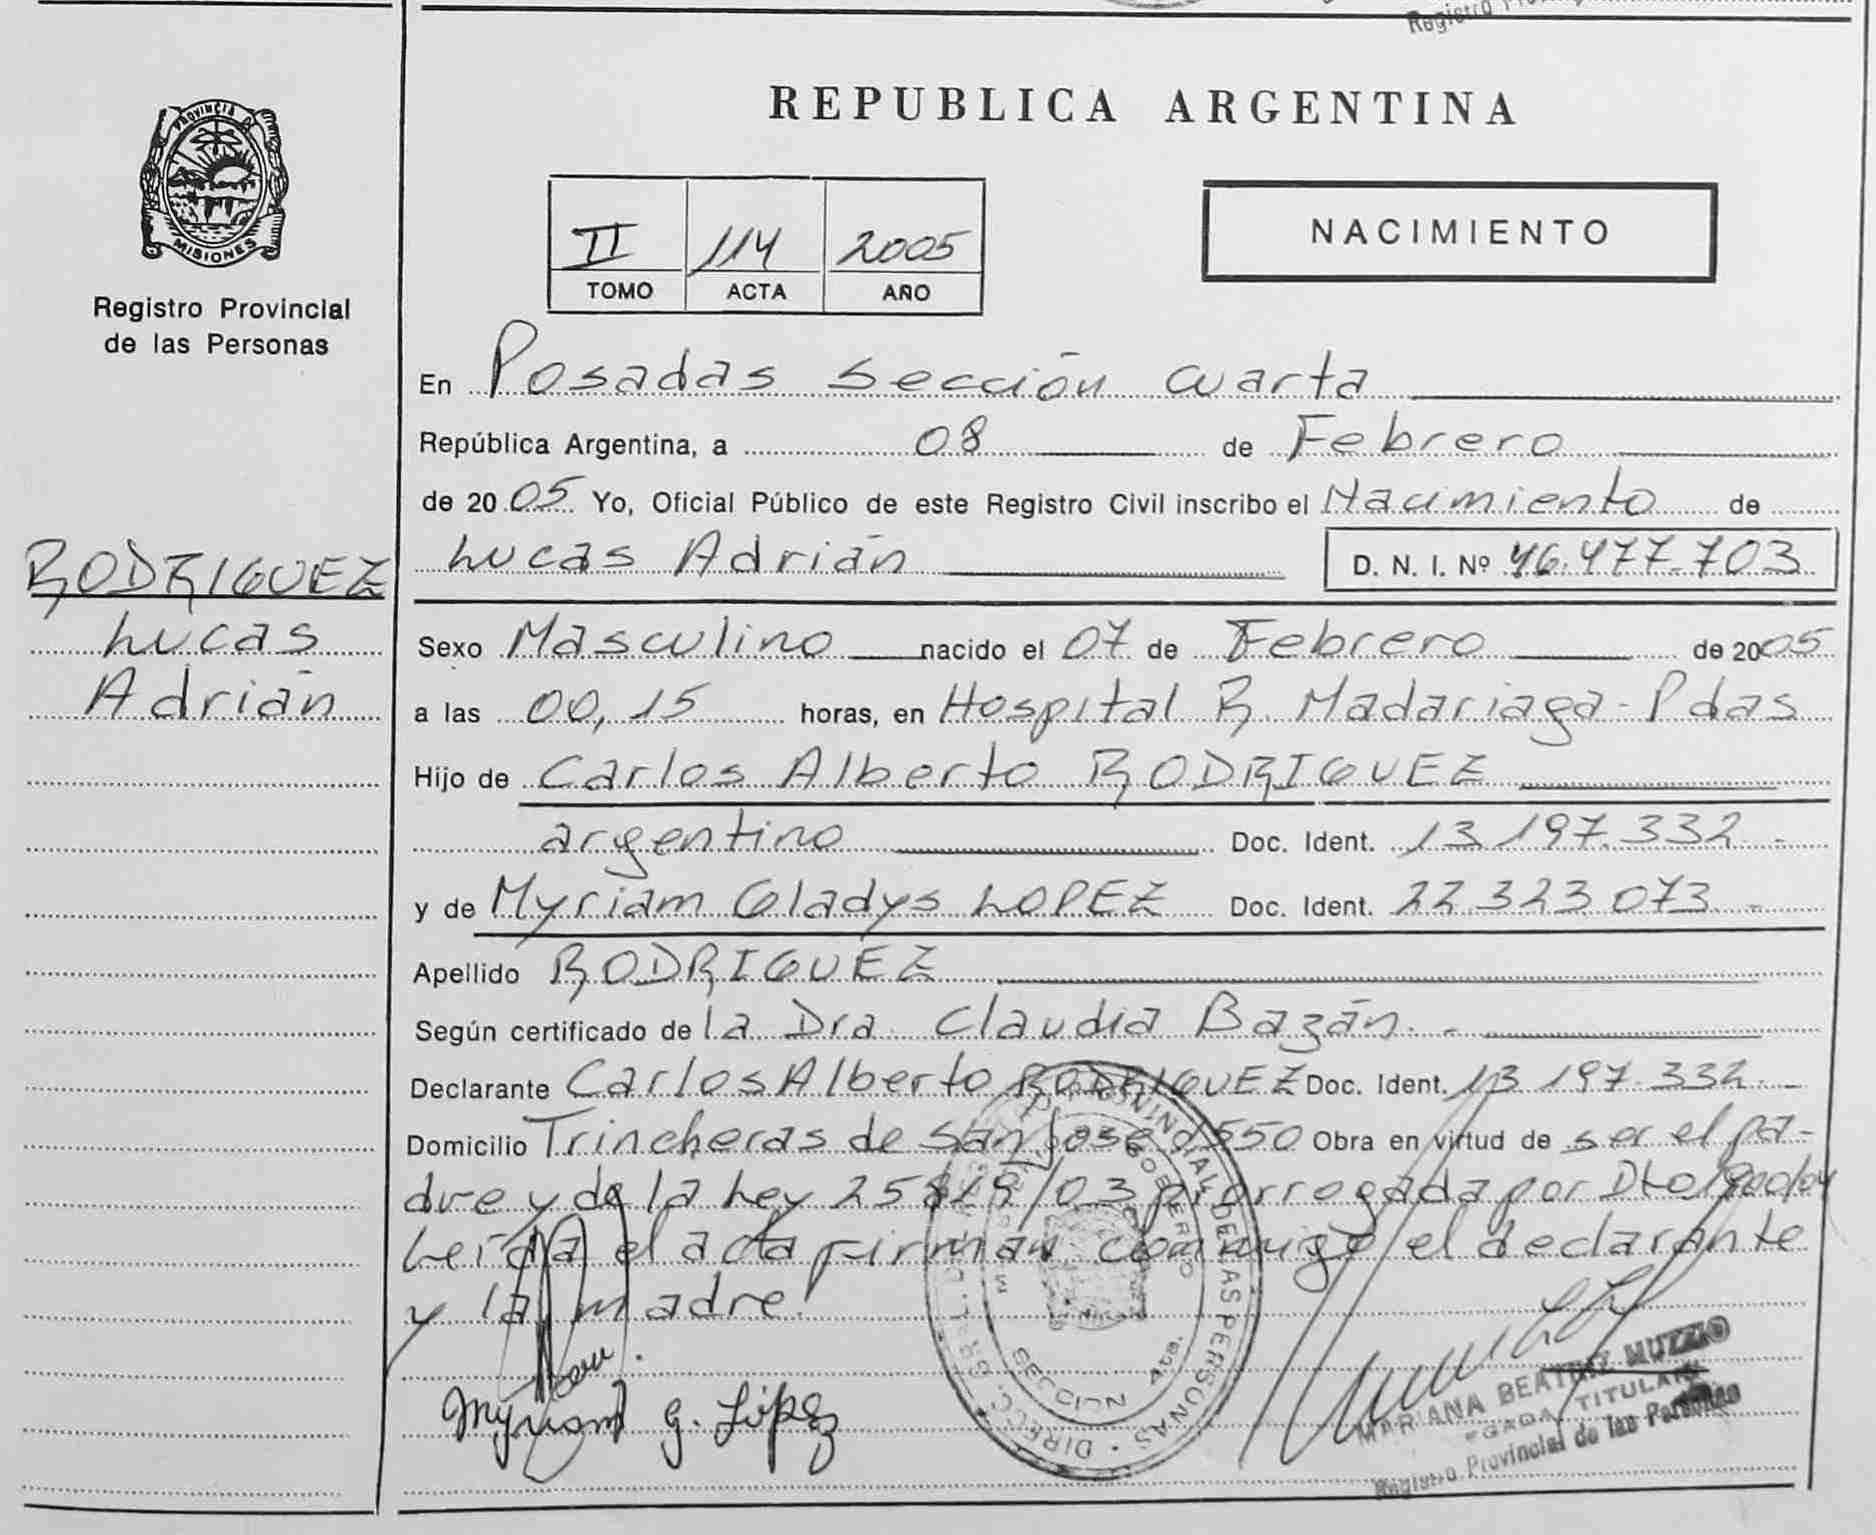 Registro
REPUBLICA ARGENTINA
PROVINCIA D
MISIONES
Registro Provincial
de las Personas
II 114 2005
TOMO ACTA AÑO
NACIMIENTO
En Posadas Sección cuarta
República Argentina, a 08 de Febrero
de 2005 Yo, Oficial Público de este Registro Civil inscribo el Nacimiento de
Lucas Adrián D. N. I. Nº 46.477.703
RODRIGUEZ
Lucas
Adrián
Sexo Masculino nacido el 07 de Febrero de 2005
a las 00,15 horas, en Hospital R. Madariaga - Pdas
Hijo de Carlos Alberto RODRIGUEZ
argentino Doc. Ident. 13.197.332.-
y de Myriam Gladys LOPEZ Doc. Ident. 22.323.073.-
Apellido RODRIGUEZ
Según certificado de la Dra. Claudia Bazán.-
Declarante Carlos Alberto RODRIGUEZ Doc. Ident. 13.197.332.-
Domicilio Trincheras de San José 550 Obra en virtud de ser el pa-
dre y de la Ley 25819/03 prorrogada por Dto
Leída el acta firman conmigo el declarante
y la madre.
Myriam G. López
MARIANA BEATRIZ MUZZIO
TITULAR
Registro Provincial de las Personas